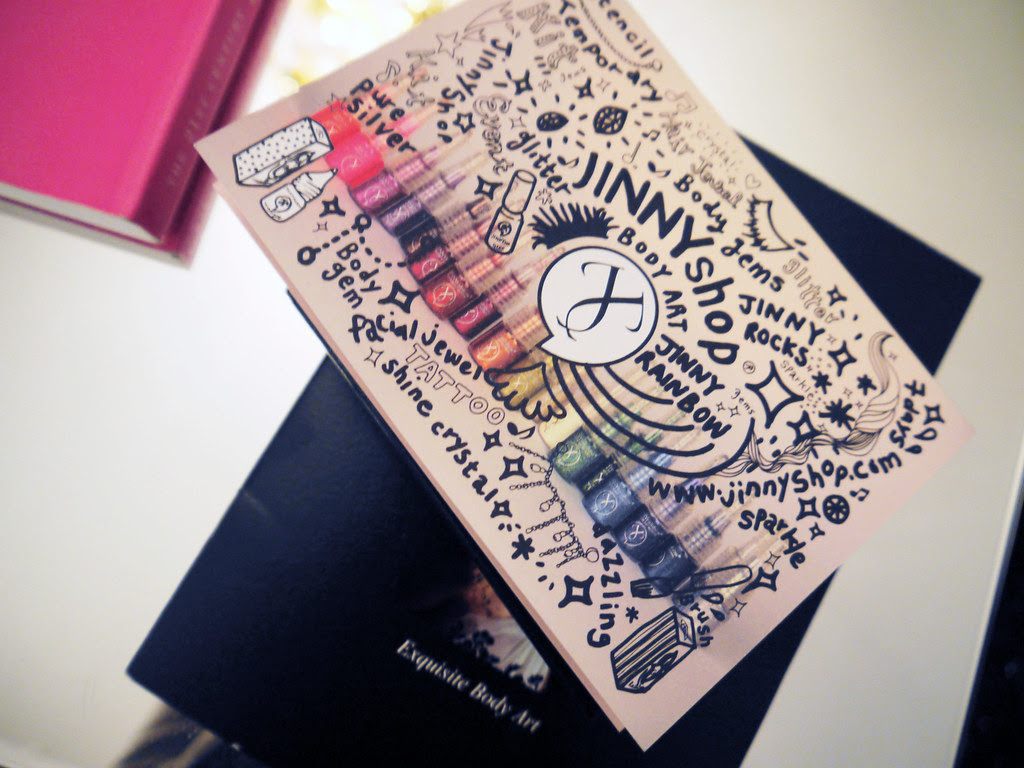 stencil
Kit
Temporary
JinnyShop
pure
silver
glitter
Body
gems
Crystal
JINNYShop
BODY
ART
JINNY
RAINBOW
JINNY
ROCKS
glitter
sparkle
gems
Body
gem
facial jewel
TATTOO
shine crystal
7 days
www.jinnyshop.com
sparkle
brush
Exquisite Body Art